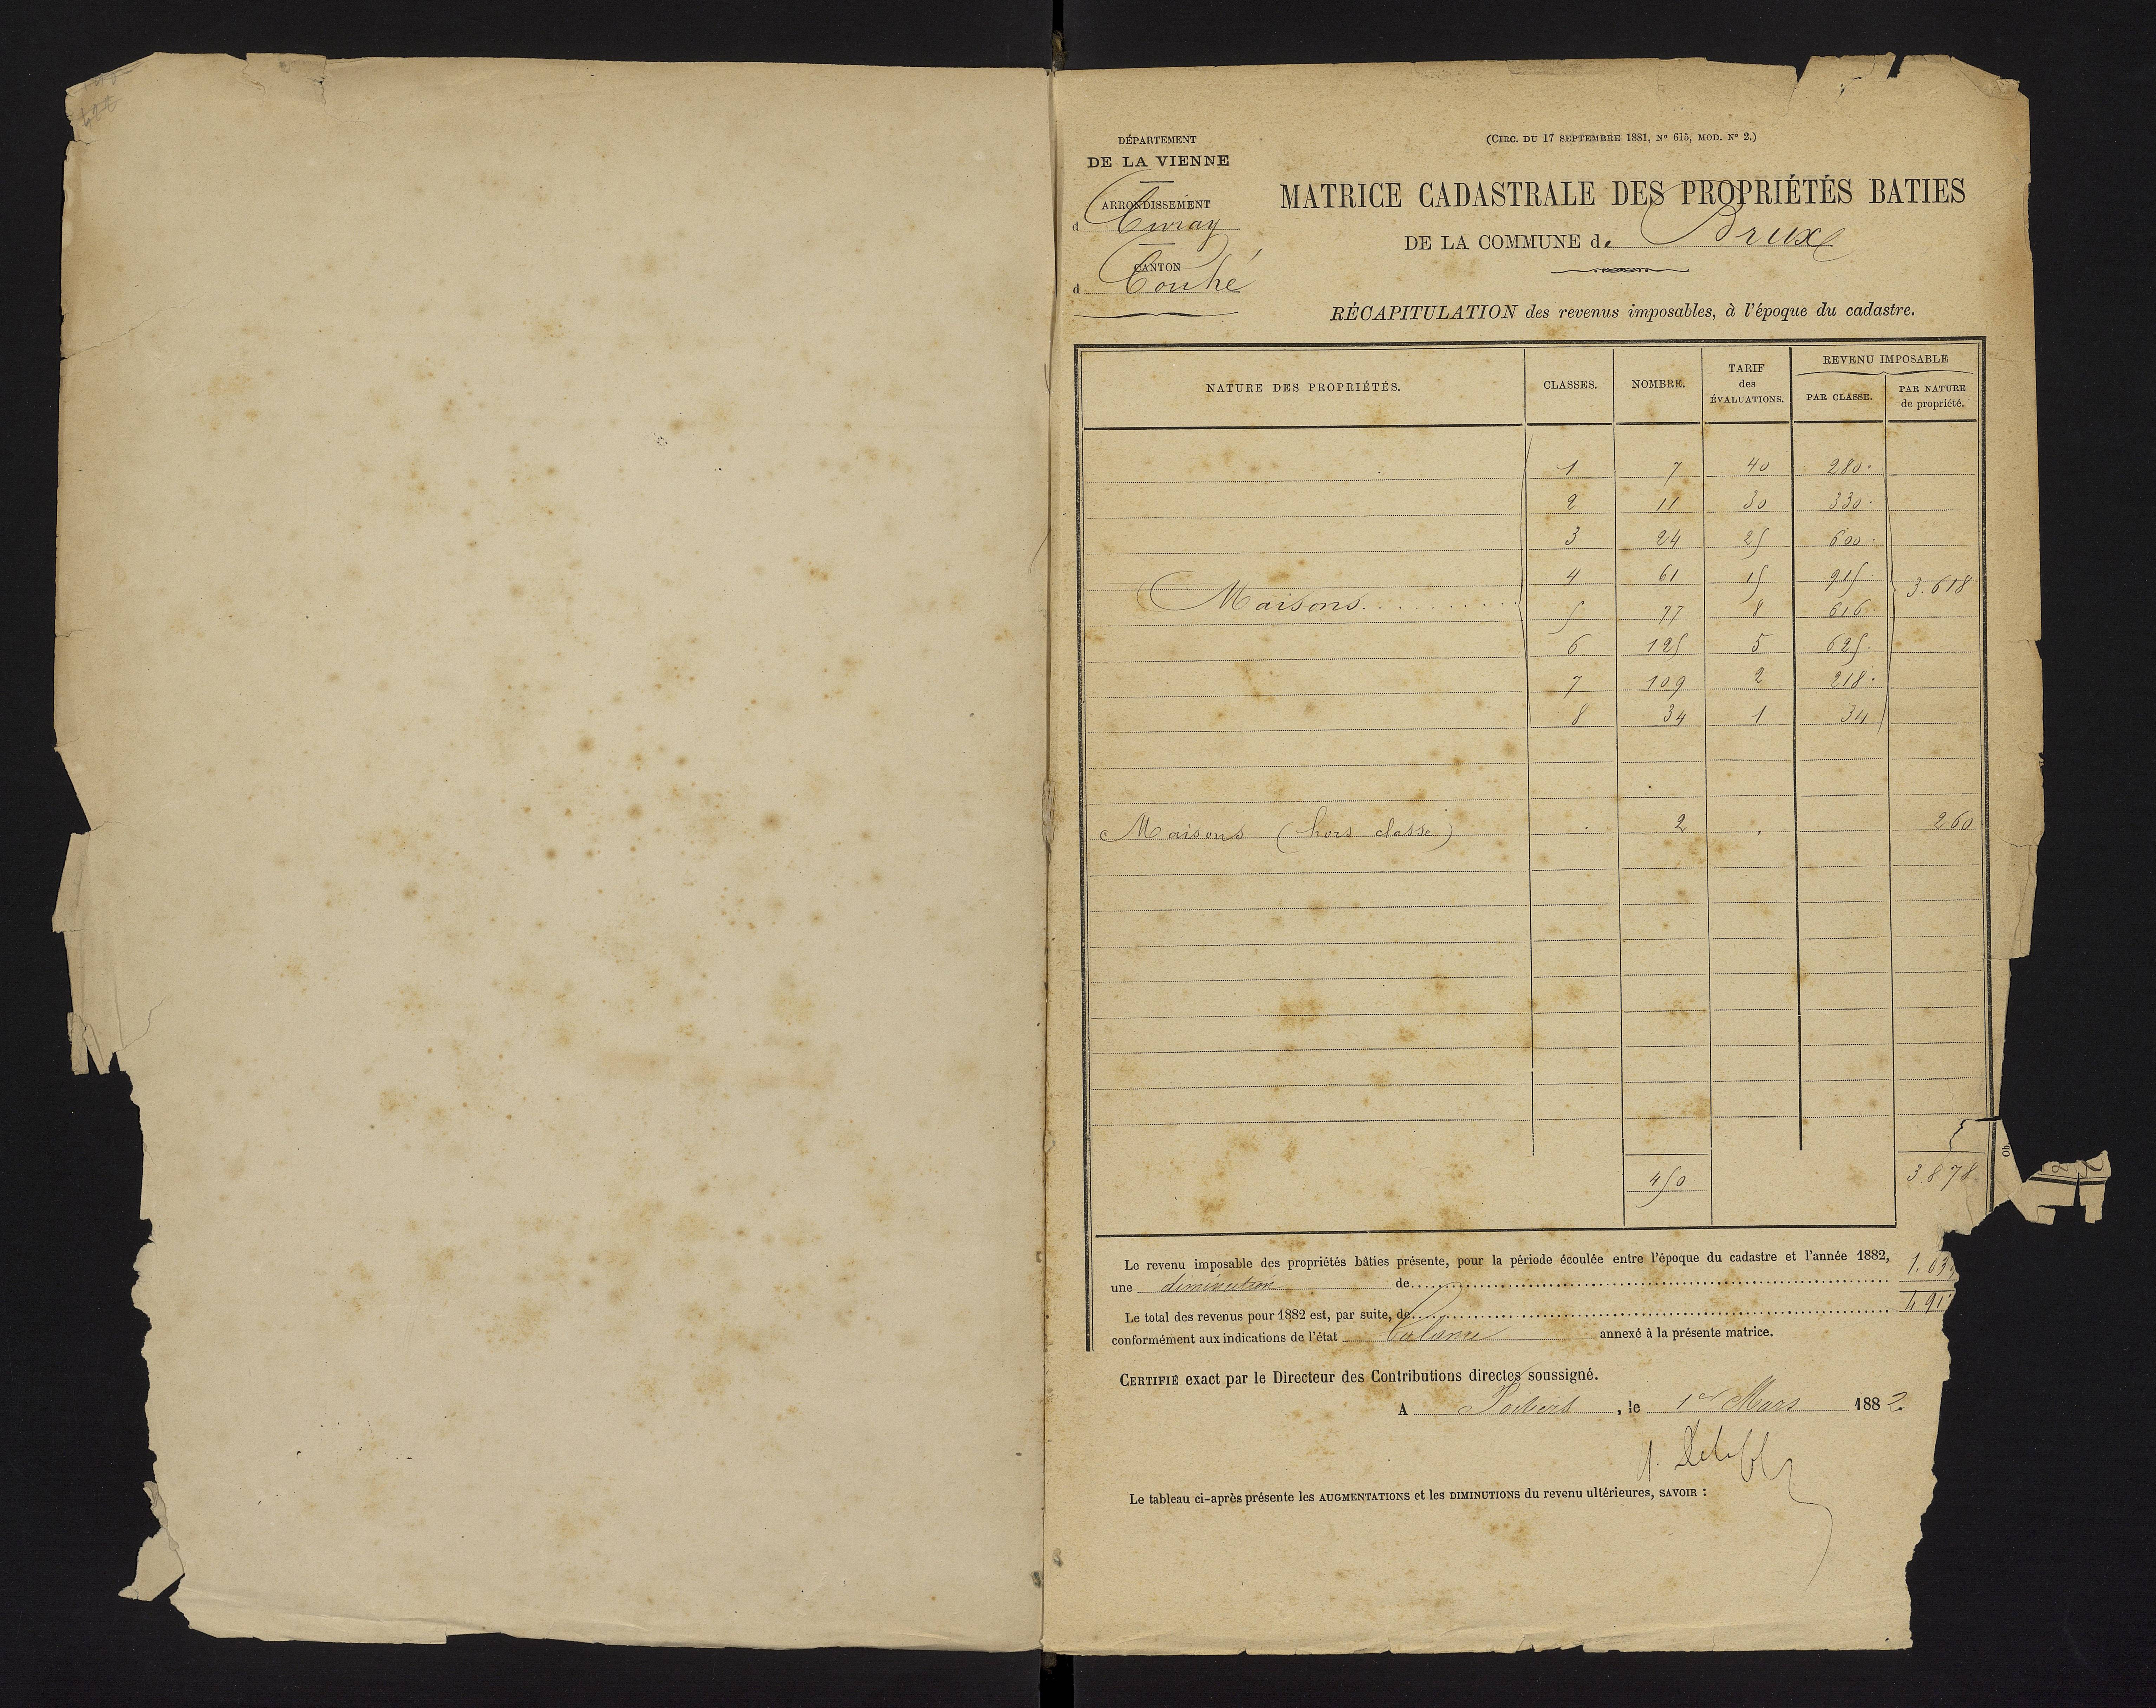 DÉPARTEMENT
DE LA VIENNE
ARRONDISSEMENT
d Civray
CANTON
d Couhé
(CIRC. DU 17 SEPTEMBRE 1881, N° 615, MOD. N° 2.)
MATRICE CADASTRALE DES PROPRIÉTÉS BATIES
DE LA COMMUNE de Brux
RÉCAPITULATION des revenus imposables, à l'époque du cadastre.
NATURE DES PROPRIÉTÉS. CLASSES. NOMBRE. TARIF des ÉVALUATIONS. REVENU IMPOSABLE PAR CLASSE. PAR NATURE de propriété.
1 7 40 280.
2 11 30 330.
3 24 25 600.
4 61 15 915.
Maisons. 3.618
5 77 8 616.
6 125 5 625.
7 109 2 218.
8 34 1 34
Maisons (hors classe) 2 260
450 3.878
Le revenu imposable des propriétés bâties présente, pour la période écoulée entre l'époque du cadastre et l'année 1882,
une diminution de
Le total des revenus pour 1882 est, par suite, de
conformément aux indications de l'état annexé à la présente matrice.
CERTIFIÉ exact par le Directeur des Contributions directes soussigné.
A Poitiers, le 1er Mars 1882
Le tableau ci-après présente les AUGMENTATIONS et les DIMINUTIONS du revenu ultérieures, SAVOIR :